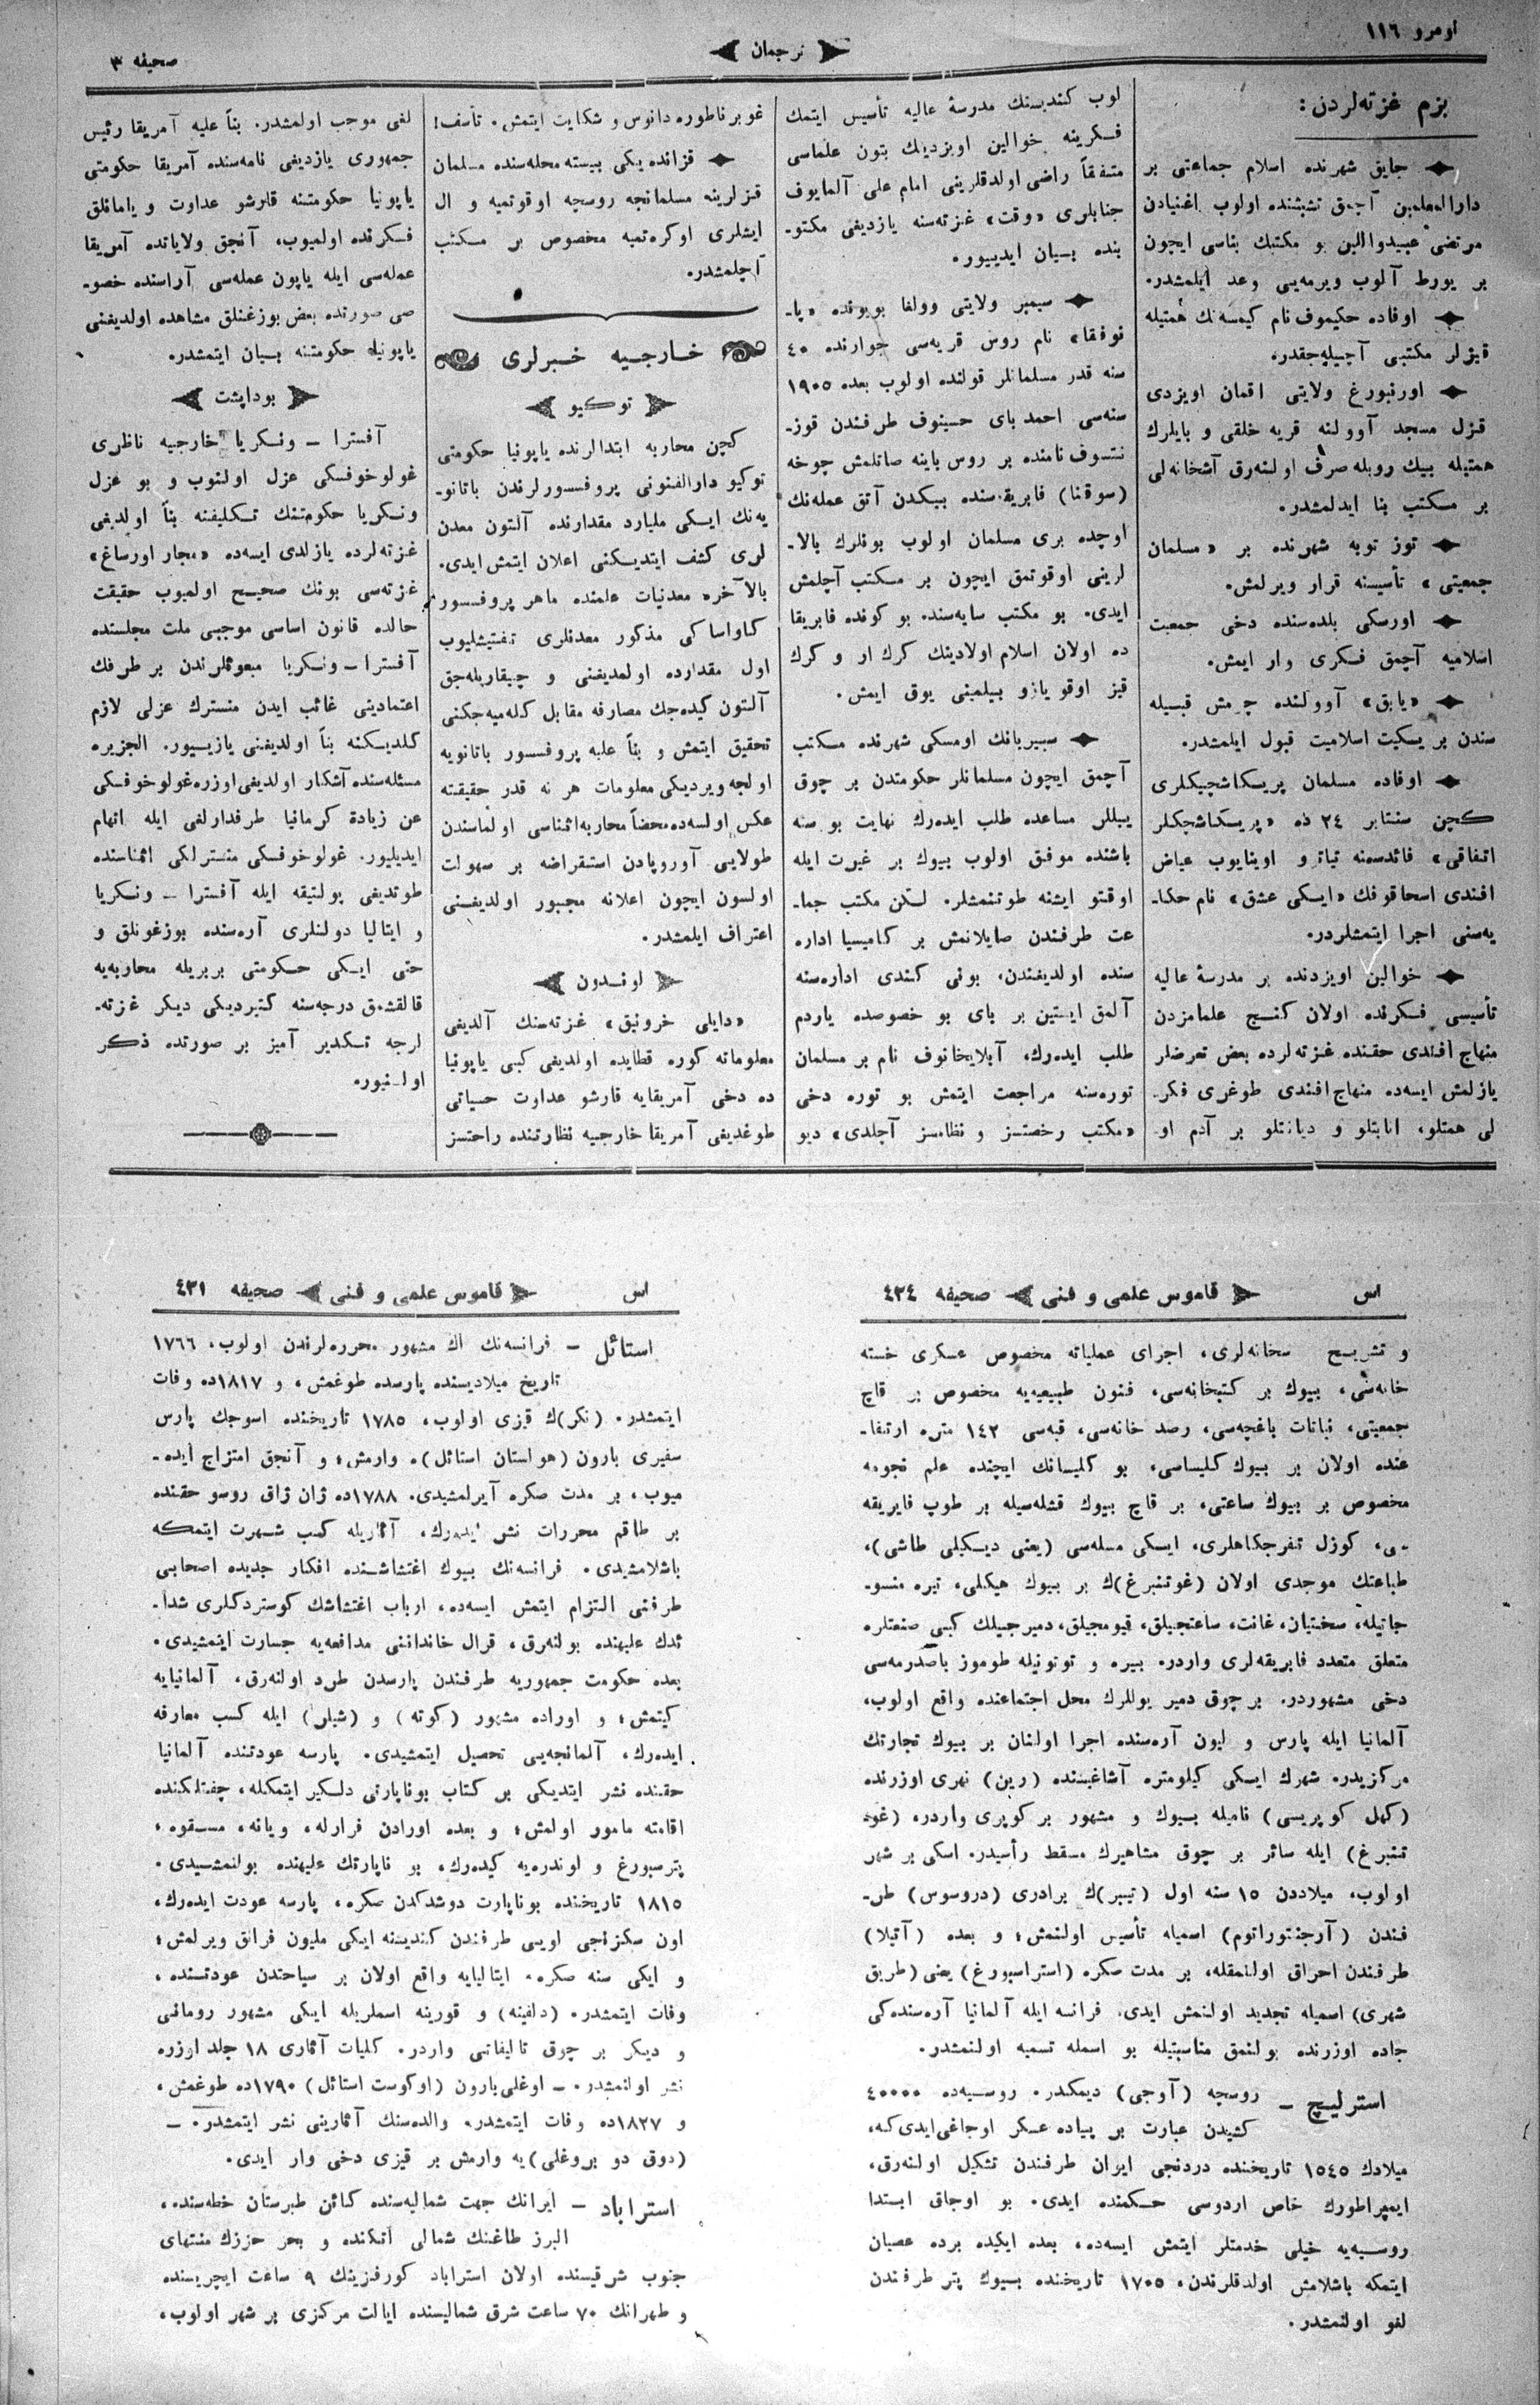 نومرو ١١٦
ترجمان
صحيفه ٣
بزم غزته‌لردن:
جايق شهرنده اسلام جماعتى بر
دارالمعلمين آچمق تشبثنده اولوب اغنيادن
مرتضى عبيدوالين بو مكتبك بناسى ايچون
بر يورط آلوب ويرمه‌يى وعد ايلمشدر.
اوفاده حكيموف نام كيمسه‌نك همتيله
قيزلر مكتبى آچيله‌جقدر.
اورنبورغ ولايتى اقمان اويزدى
قزل مسجد آوولنه قريه خلقى و بايلرك
همتيله بيك روبله صرف اولنه‌رق آشخانه‌لى
بر مكتب بنا ايدلمشدر.
توز توبه شهرنده بر «مسلمان
جمعيتى» تأسيسنه قرار ويرلمش.
اورسكى بلده‌سنده دخى جمعيت
اسلاميه آچمق فكرى وار ايمش.
«يابق» آوولنده چرمش قبيله
سندن بر يسكيت اسلاميت قبول ايلمشدر.
اوفاده مسلمان پريسكاشچيكلرى
كچن سنتابر ٢٤ ده «پريسكاشچكلر
اتفاقى» فائدسنه تياتر و اوينايوب عياض
افندى اسحاقوفك «ايسكى عشق» نام حكا-
يه‌سنى اجرا ايتمشلردر.
خوالين اويزدنده بر مدرسۀ عاليه
تأسيسى فكرنده اولان كنج علمامزدن
منهاج افندى حقنده غزته‌لرده بعض تعرضلر
يازلمش ايسه‌ده منهاج افندى طوغرى فكر-
لى همتلو، انابتلو و ديانتلو بر آدم او-
لوب كنديسنك مدرسۀ عاليه تأسيس ايتمك
فكرينه خوالين اويزدينك بتون علماسى
متفقاً راضى اولدقلرينى امام على آلمايوف
جنابلرى «وقت» غزته‌سنه يازديغى مكتو-
بنده بيان ايدييور.
سيمبر ولايتى وولغا بويونده «پا-
نوفقا» نام روس قريه‌سى جوارنده ٤٠
سنه قدر مسلمانلر قولنده اولوب بعده ١٩٠٥
سنه‌سى احمد باى حسينوف طرفندن قوز-
نتسوف نامنده بر روس باينه صاتلمش چوخه
(سوقنا) فابريقه‌سنده بيكدن آتق عمله‌نك
اوچده برى مسلمان اولوب بونلرك بالا-
لرينى اوقوتمق ايچون بر مكتب آچلمش
ايدى. بو مكتب سايه‌سنده بو كونده فابريقا
ده اولان اسلام اولادينك كرك ار و كرك
قيز اوقو يازو بيلمينى يوق ايمش.
سيبريانك اومسكى شهرنده مكتب
آچمق ايچون مسلمانلر حكومتدن بر چوق
ييللر مساعده طلب ايده‌رك نهايت بو سنه
باشنده موفق اولوب بيوك بر غيرت ايله
اوقتو ايشنه طوتنمشلر. لكن مكتب جما-
عت طرفندن صايلانمش بر كاميسيا اداره
سنده اولديغندن، بونى كندى اداره‌سنه
آلمق ايستين بر باى بو خصوصده ياردم
طلب ايده‌رك، آبلايخانوف نام بر مسلمان
توره‌سنه مراجعت ايتمش بو توره دخى
«مكتب رخصتسز و نظامسز آچلدى» ديو
غوبرناطوره دانوس و شكايت ايتمش. تأسف!
قزانده يكى بيسته محله‌سنده مسلمان
قزلرينه مسلمانجه روسجه اوقوتمه و ال
ايشلرى اوكره‌تمه مخصوص بر مكتب
آچلمشدر.
خارجيه خبرلرى
توكيو
كچن محاربه ابتدالرنده ياپونيا حكومتى
توكيو دارالفنونى پروفسسورلرندن باتانو-
يه‌نك ايكى مليارد مقدارنده آلتون معدن
لرى كشف ايتديكنى اعلان ايتمش ايدى.
بالآخره معدنيات علمنده ماهر پروفسسور
كاواساكى مذكور معدنلرى تفتيشليوب
اول مقدارده اولمديغنى و چيقاريله‌جق
آلتون كيده‌جك مصارفه مقابل كله‌ميه‌جكنى
تحقيق ايتمش و بناً عليه پروفسسور باتانويه
اولجه ويرديكى معلومات هر نه قدر حقيقته
عكس اولسه‌ده محضاً محاربه اثناسى اولماسندن
طولايى آوروپادن استقراضه بر سهولت
اولسون ايچون اعلانه مجبور اولديغنى
اعتراف ايلمشدر.
لوندون
«دايلى خرونيق» غزته‌سنك آلديغى
معلوماته كوره قطايده اولديغى كبى ياپونيا
ده دخى آمريقايه قارشو عداوت حسياتى
طوغديغى آمريقا خارجيه نظارتنده راحتسز
لغى موجب اولمشدر. بناً عليه آمريقا رئيس
جمهورى يازديغى نامه‌سنده آمريقا حكومتى
ياپونيا حكومتنه قارشو عداوت و يامانلق
فكرنده اولميوب، آنجق ولاياتده آمريقا
عمله‌سى ايله ياپون عمله‌سى آراسنده خصو-
صى صورتده بعض بوزغنلق مشاهده اولديغنى
ياپونيا حكومتنه بيان ايتمشدر.
بوداپشت
آفسترا ـ ونكريا خارجيه ناظرى
غولوخوفسكى عزل اولنوب و بو عزل
ونكريا حكومتنك تكليفنه بناً اولديغى
غزته‌لرده يازلدى ايسه‌ده «مجار اورساغ»
غزته‌سى بونك صحيح اولميوب حقيقت
حالده قانون اساسى موجبى ملت مجلسنده
آفسترا ـ ونكريا مبعوثلرندن بر طرفك
اعتمادينى غائب ايدن منسترك عزلى لازم
كلديكنه بناً اولديغنى يازييور. الجزيره
مسئله‌سنده آشكار اولديغى اوزره غولوخوفسكى
عن زيادة كرمانيا طرفدارلغى ايله اتهام
ايديليور. غولوخوفسكى منسترلكى اثناسنده
طوتديغى پولتيقه ايله آفسترا ـ ونكريا
و ايتاليا دولتلرى آره‌سنده بوزغونلق و
حتى ايكى حكومتى بربريله محاربه‌يه
قالقشمق درجه‌سنه كتيرديكى ديكر غزته-
لرجه تكدير آميز بر صورتده ذكر
اولنيور.
اس
قاموس علمى و فنى
صحيفه ٤٣٤
و تشريح خانه‌لرى، اجراى عملياته مخصوص عسكرى خسته
خانه‌سى، بيوك بر كتبخانه‌سى، فنون طبيعيه‌يه مخصوص بر قاچ
جمعيتى، نباتات باغچه‌سى، رصد خانه‌سى، قبه‌سى ١٤٢ متره ارتفا-
عنده اولان بر بيوك كليساسى، بو كليسانك ايچنده علم نجومه
مخصوص بر بيوك ساعتى، بر قاچ بيوك قشله‌سيله بر طوپ فابريقه
سى، كوزل تنفرجكاهلرى، ايكى مسله‌سى (يعنى ديكيلى طاشى)،
طباعتك موجدى اولان (غوتنبرغ)ك بر بيوك هيكلى، تيره منسو-
جاتيله، سختيان، غانت، ساعتجيلق، قيومجيلق، دميرجيلك كبى صنعتلره
متعلق متعدد فابريقه‌لرى واردر. بيره و توتونيله طوموز باصدرمه‌سى
دخى مشهوردر. بر چوق دمير يوللرك محل اجتماعنده واقع اولوب،
آلمانيا ايله پارس و ليون آره‌سنده اجرا اولنان بر بيوك تجارتك
مركزيدر. شهرك ايكى كيلومتره آشاغيسنده (رين) نهرى اوزرنده
(كهل كوپريسى) ناميله بيوك و مشهور بر كوپرى واردر، (غو-
تنبرغ) ايله سائر بر چوق مشاهيرك مسقط رأسيدر. اسكى بر شهر
اولوب، ميلاددن ١٥ سنه اول (تيبر)ك برادرى (دروسوس) طر-
فندن (آرجنتوراتوم) اسميله تأسيس اولنمش؛ و بعده (آتيلا)
طرفندن احراق اولنمغله، بر مدت صكره (استراسبورغ) يعنى (طريق
شهرى) اسميله تجديد اولنمش ايدى. فرانسه ايله آلمانيا آره‌سنده‌كى
جاده اوزرنده بولنمق مناسبتيله بو اسمله تسميه اولنمشدر.
استرليچ ـ روسجه (آوجى) ديمكدر. روسيه‌ده ٤٠٠٠٠
كشيدن عبارت بر پياده عسكر اوجاغى ايدى كه،
ميلادك ١٥٤٥ تاريخنده دردنجى ايران طرفندن تشكيل اولنه‌رق،
ايمپراطورك خاص اردوسى حكمنده ايدى. بو اوجاق ابتدا
روسيه‌يه خيلى خدمتلر ايتمش ايسه‌ده، بعده ايكيده برده عصيان
ايتمكه باشلامش اولدقلرندن، ١٧٠٥ تاريخنده بيوك پتر طرفندن
لغو اولنمشدر.
اس
قاموس علمى و فنى
صحيفه ٤٣١
استائل ـ فرانسه‌نك اك مشهور محرره‌لرندن اولوب، ١٧٦٦
تاريخ ميلاديسنده پارسده طوغمش، و ١٨١٧ده وفات
ايتمشدر. (نكر)ك قيزى اولوب، ١٧٨٥ تاريخنده اسوجك پارس
سفيرى بارون (هولستان استائل)ه وارمش؛ و آنجق امتزاج ايده-
ميوب، بر مدت صكره آيرلمشيدى. ١٧٨٨ده ژان ژاق روسو حقنده
بر طاقم محررات نشر ايده‌رك، آثاريله كسب شهرت ايتمكه
باشلامشيدى. فرانسه‌نك بيوك اغتشاشنده افكار جديده اصحابى
طرفنى التزام ايتمش ايسه‌ده، ارباب اغتشاشك كوستردكلرى شدا-
ئدك عليهنده بولنه‌رق، قرال خاندانى مدافعه‌يه جسارت ايتمشيدى.
بعده حكومت جمهوريه طرفندن پارسدن طرد اولنه‌رق، آلمانيايه
كيتمش؛ و اوراده مشهور (كوته) و (شيلر) ايله كسب معارفه
ايده‌رك، آلمانجه‌يى تحصيل ايتمشيدى. پارسه عودتنده آلمانيا
حقنده نشر ايتديكى بر كتاب بوناپارتى دلكير ايتمكله، چفتلكنده
اقامته مامور اولمش؛ و بعده اورادن فرارله، ويانه، مسقوه،
پترسبورغ و لوندره‌يه كيده‌رك، بوناپارتك عليهنده بولنمشيدى.
١٨١٥ تاريخنده بوناپارت دوشدكدن صكره، پارسه عودت ايده‌رك،
اون سكزنجى لويى طرفندن كنديسنه ايكى مليون فرانق ويرلمش؛
و ايكى سنه صكره، ايتاليايه واقع اولان بر سياحتدن عودتنده،
وفات ايتمشدر. (دلفينه) و قورينه اسملريله ايكى مشهور رومانى
و ديكر بر چوق تاليفاتى واردر. كليات آثارى ١٨ جلد اوزره
نشر اولنمشدر. ـ اوغلى بارون (اوكوست استائل) ١٧٩٠ده طوغمش،
و ١٨٢٧ده وفات ايتمشدر. والده‌سنك آثارينى نشر ايتمشدر. ـ
(دوق دو بروغلى)يه وارمش بر قيزى دخى وار ايدى.
استراباد ـ ايرانك جهت شماليه‌سنده كائن طبرستان خطه‌سنده،
البرز طاغنك شمالى اتكنده و بحر خزرك منتهاى
جنوب شرقيسنده اولان استراباد كورفزينك ٩ ساعت ايچريسنده
و طهرانك ٧٠ ساعت شرق شماليسنده ايالت مركزى بر شهر اولوب،